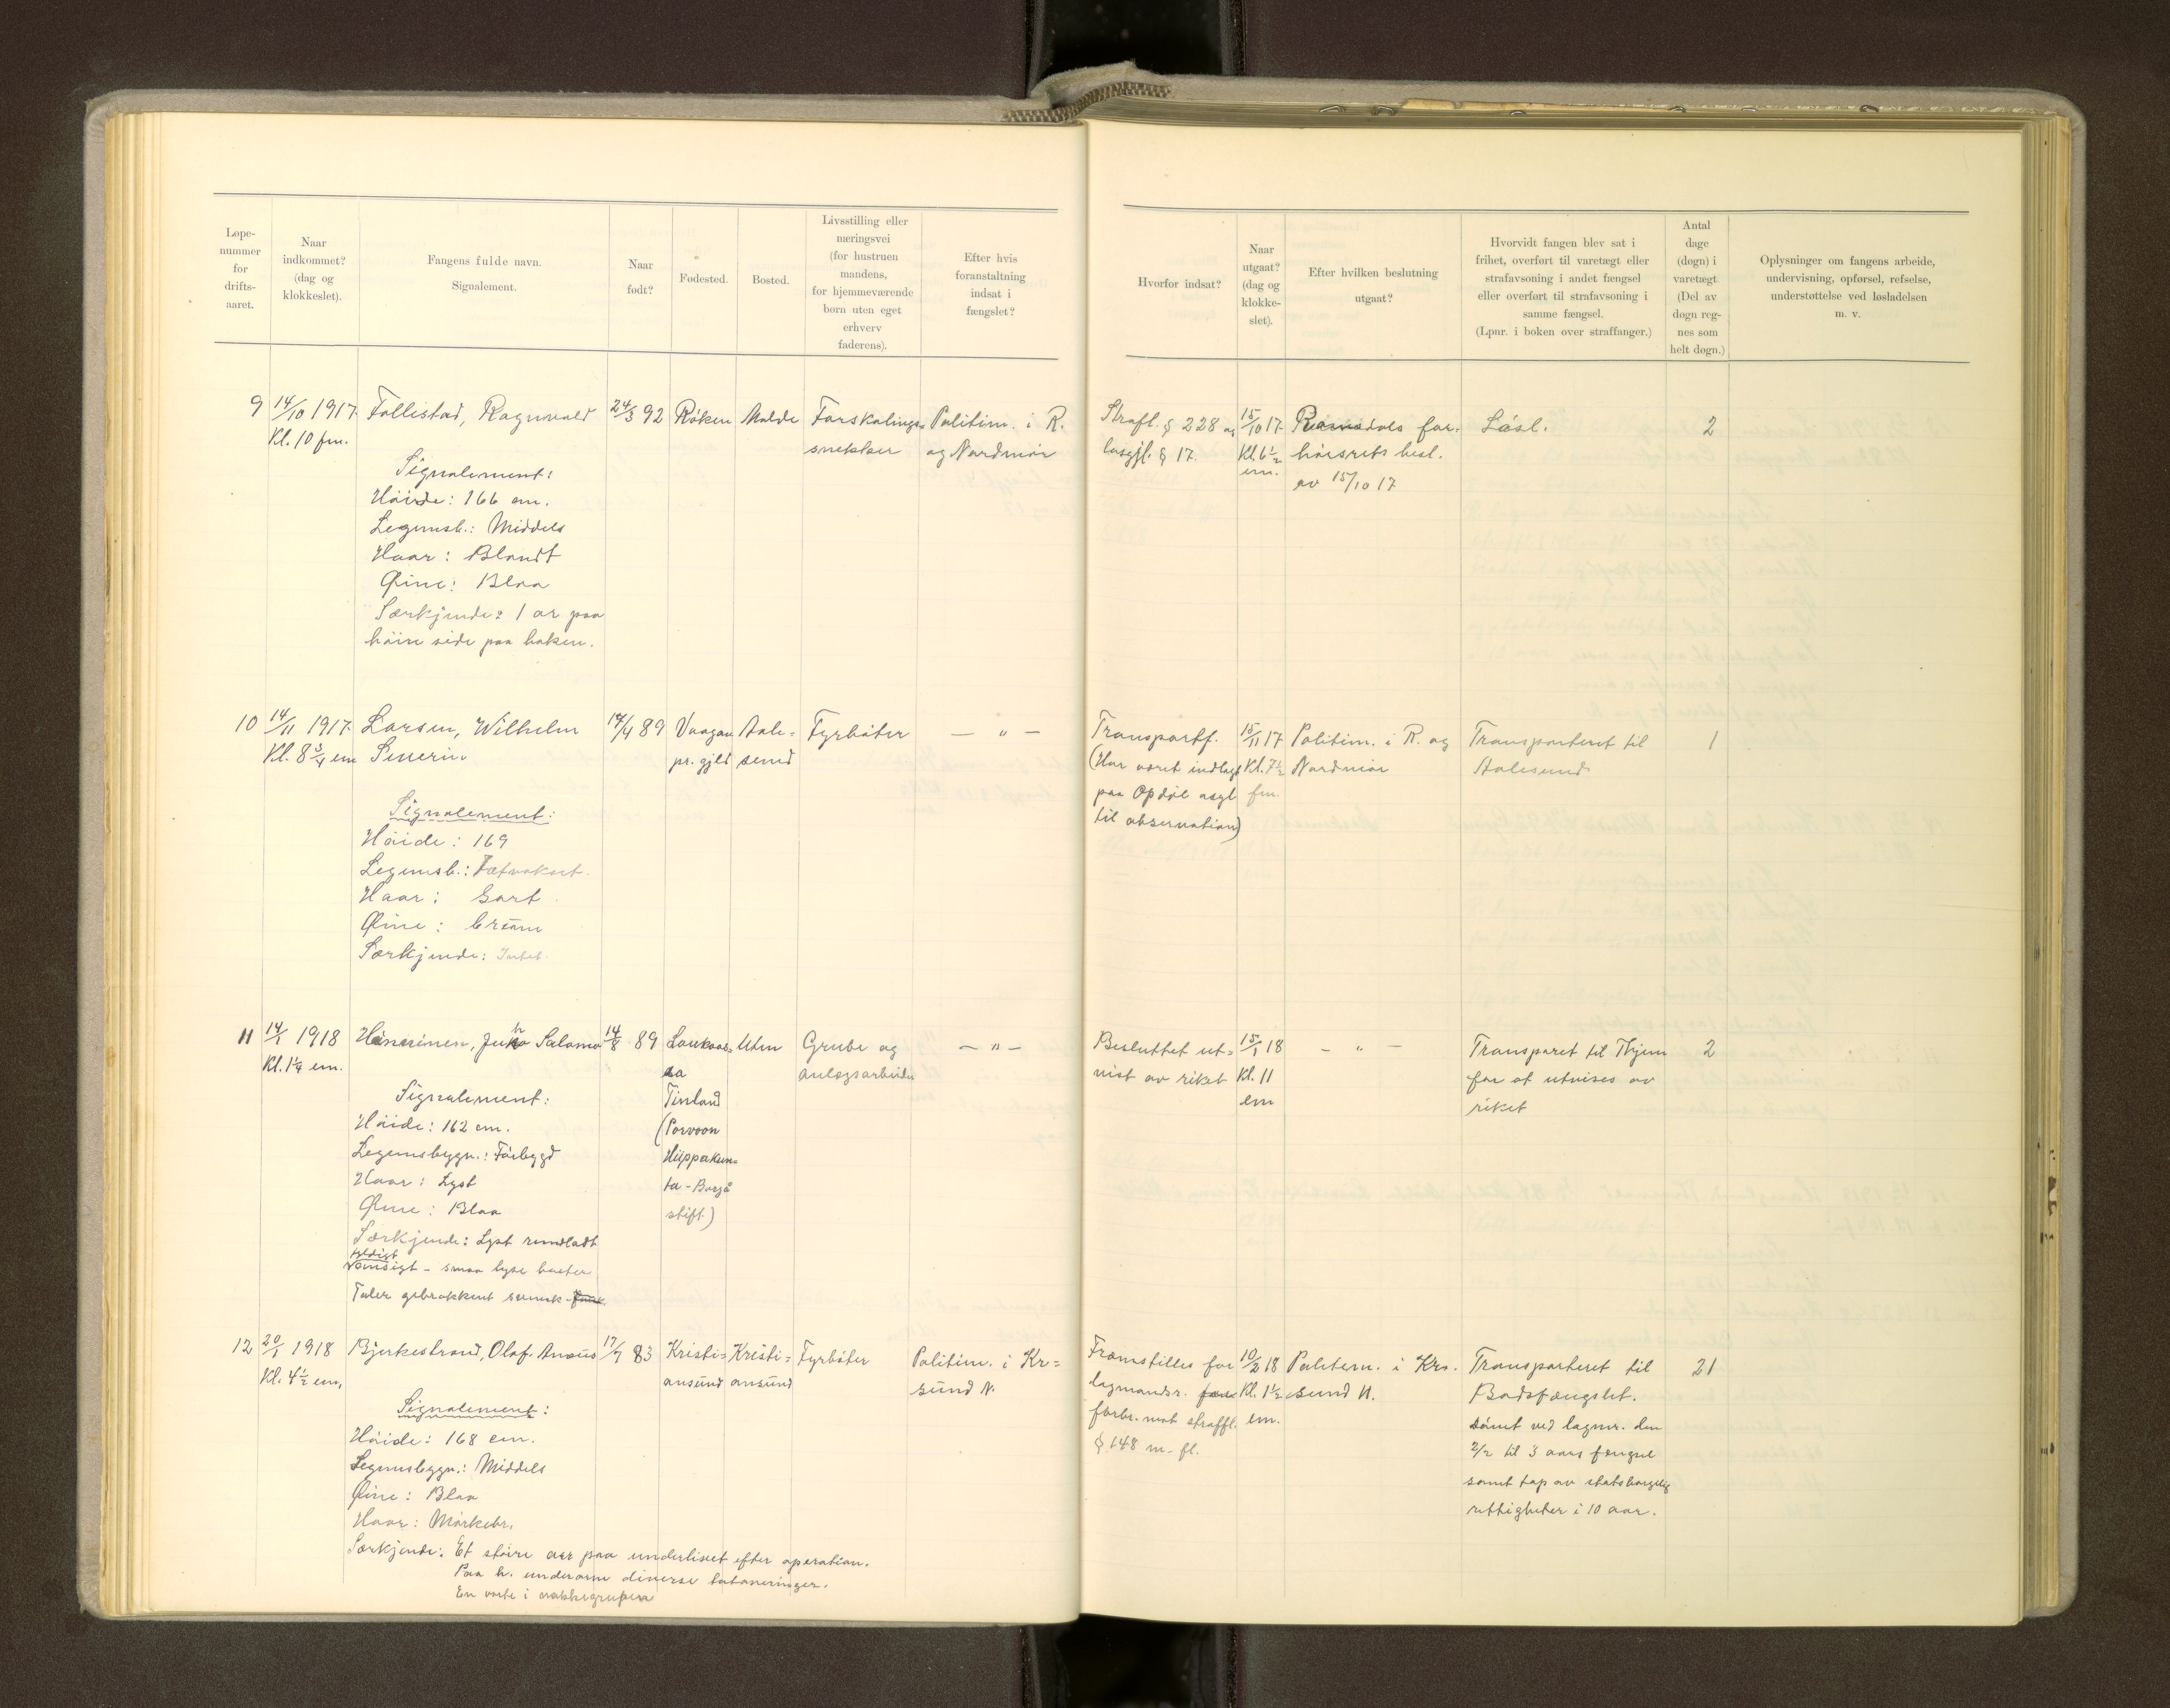 Løpe-
nummer
for
drifts-
aaret.
Naar
indkommet?
(dag og
klokkeslet).
Fangens fulde navn.
Signalement.
Naar
født?
Fødested.
Bosted.
Livsstilling eller
næringsvei
(for hustruen
mandens,
for hjemmeværende
børn uten eget
erhverv
faderens).
Efter hvis
foranstaltning
indsat i
fængslet?
Hvorfor indsat?
Naar
utgaat?
(dag og
klokke-
slet).
Efter hvilken beslutning
utgaat?
Hvorvidt fangen blev sat i
frihet, overført til varetægt eller
strafavsoning i andet fængsel
eller overført til strafavsoning i
samme fængsel.
(Lpnr. i boken over straffanger.)
Antal
dage
(døgn) i
varetægt.
(Del av
døgn reg-
nes som
helt døgn.)
Oplysninger om fangens arbeide,
undervisning, opførsel, refselse,
understøttelse ved løsladelsen
m. v.
9 14/10 1917 Follistad, Ragnvald 24/3 92 Røken Molde Forskalings= Politim. i R. Strafl. § 228 og 15/10 17 Romsdals for= Løsl. 2
Kl. 10 fm. snekker og Nordmør løsgjl. § 17. Kl. 6 1/2 hørsrets besl.
em. av 15/10 17
Signalement:
Høide: 166 cm.
Legemsb.: Middels
Haar: Blondt
Øine: Blaa
Særkjende: 1 ar paa
høire side paa haken.
10 14/11 1917 Larsen, Wilhelm 17/4 89 Vaagan Aale= Fyrbøter — " — Transportf. 15/11 17 Politim. i R. og Transporteret til 1
Kl. 8 3/4 em Severin pr. gjeld sund (Har været indlagt Kl. 7 1/2 Nordmør Aalesund
paa Opdøl asyl fm.
til observation)
Signalement:
Høide: 169
Legemsb.: Tætvokset.
Haar: Sort
Øine: brune
Særkjende: Intet.
11 14/1 1918 Hänninen, Juho Salomo 14/8 89 Loukaas= Uten Grube og — " — Besluttet ut= 15/1 18 — " — Transporet til Thjem 2
Kl. 1 1/4 em. sa anlægsarbeider vist av riket Kl. 11 for at utvises av
em riket
Signalement: Finland
Høide: 162 cm. (Porvoon
Legemsbygn.: Førbygd Hiippakun=
Haar: Lyst ta - Borgå
Øine: Blaa stift)
Særkjende: Lyst rundladt
fyldigt
ansigt - smaa lyse barter
Taler gebrokkent svensk
12 20/1 1918 Bjerkestrand, Olaf Ansius 17/7 83 Kristi= Kristi= Fyrbøter Politim. i Kr= Fremstilles for 10/2 18 Politim. i Krs. Transporteret til 21
Kl. 4 1/2 em, ansund ansund sund N. lagmandsr. for Kl. 1 1/2 sund N. Bodsfængslet.
forbr. mot straffl. em. Dømt ved lagmr. den
§ 148 m. fl. 2/2 til 3 aars fængsel
samt tap av statsborgelig
rettigheter i 10 aar.
Signalement:
Høide: 168 cm.
Legemsbygn.: Middels
Øine: Blaa
Haar: Mørkebr.
Særkjende: Et større arr paa underlivet efter operation.
Paa h. underarm diverse tatoveringer.
En vorte i nakkegrupen